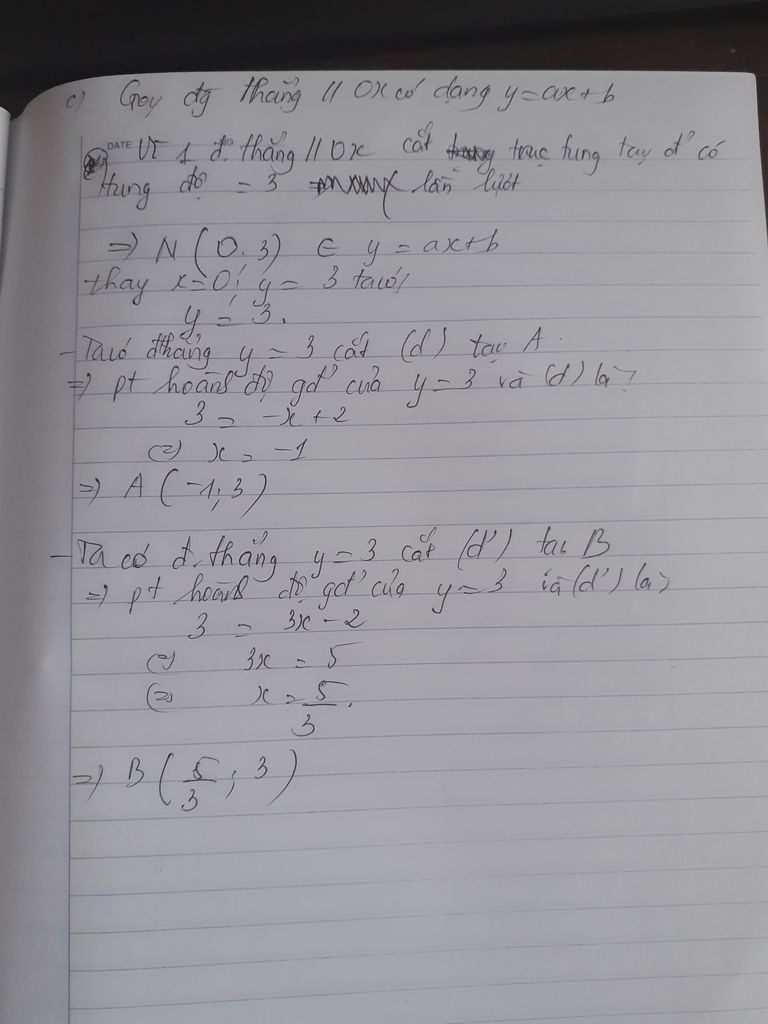 c) Gọi đg thẳng // Ox có dạng y = ax + b
DATE Vì 1 đ. thẳng // Ox cắt trục tung tại đ' có
tung độ = 3 lần lượt
=> N (0; 3) ∈ y = ax + b
thay x = 0; y = 3 ta có:
y = 3.
- Ta có đ thẳng y = 3 cắt (d) tại A.
=> pt hoành độ gđ' của y = 3 và (d) là:
3 = -x + 2
(=) x = -1
=> A (-1; 3)
- Ta có đ. thẳng y = 3 cắt (d') tại B
=> pt hoành độ gđ' của y = 3 và (d') là:
3 = 3x - 2
(=) 3x = 5
(=) x = 5/3.
=> B (5/3; 3)